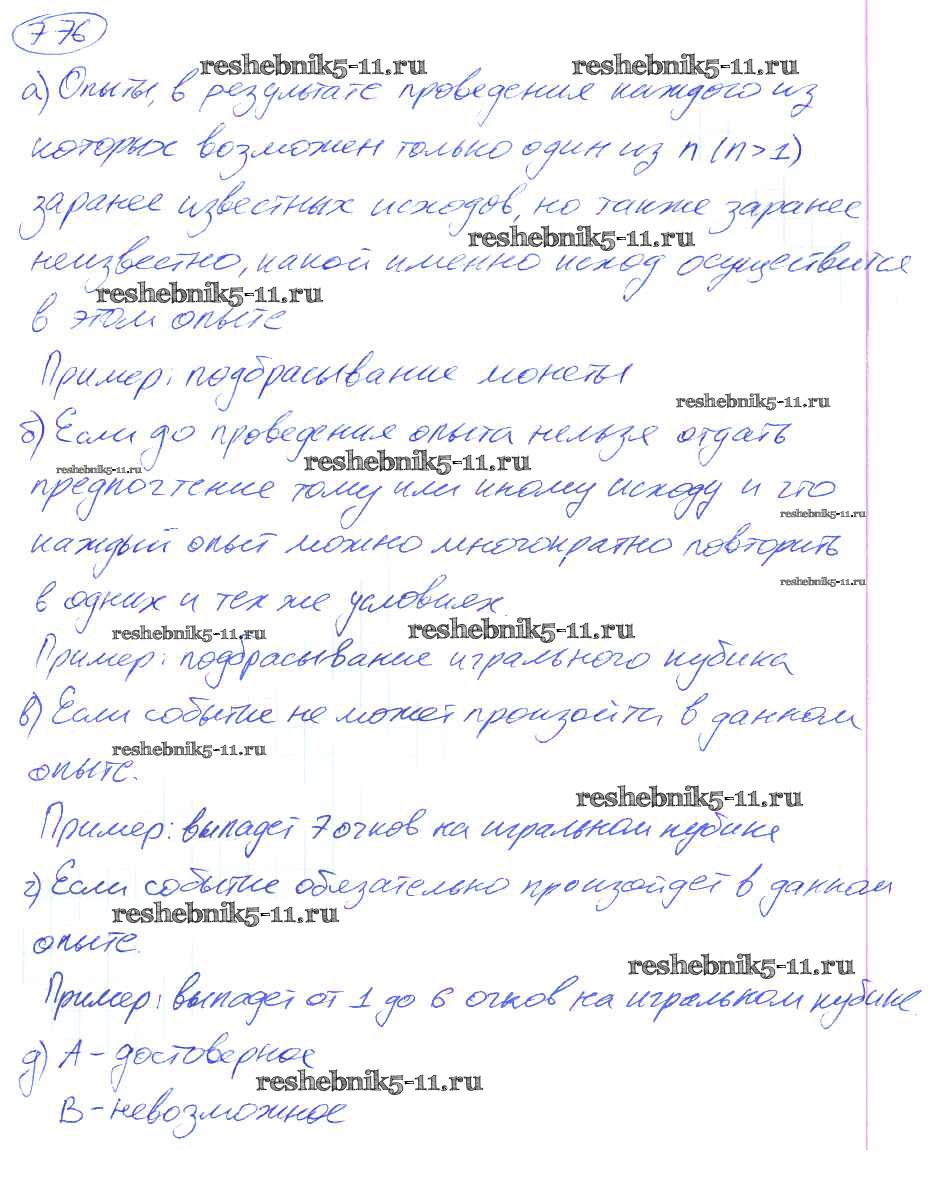 776
reshebnik5-11.ru reshebnik5-11.ru
а) Опыты, в результате проведения каждого из
которых возможен только один из n (n > 1)
заранее известных исходов, но также заранее
reshebnik5-11.ru
неизвестно, какой именно исход осуществится
reshebnik5-11.ru
в этом опыте
Пример: подбрасывание монеты
reshebnik5-11.ru
б) Если до проведения опыта нельзя отдать
reshebnik5-11.ru reshebnik5-11.ru
предпочтение тому или иному исходу и что
reshebnik5-11.ru
каждый опыт можно многократно повторить
reshebnik5-11.ru
в одних и тех же условиях.
reshebnik5-11.ru reshebnik5-11.ru
Пример: подбрасывание игрального кубика
в) Если событие не может произойти в данном
reshebnik5-11.ru
опыте.
reshebnik5-11.ru
Пример: выпадет 7 очков на игральном кубике
г) Если событие обязательно произойдет в данном
reshebnik5-11.ru
опыте.
reshebnik5-11.ru
Пример: выпадет от 1 до 6 очков на игральном кубике.
д) А - достоверное
reshebnik5-11.ru
В - невозможное